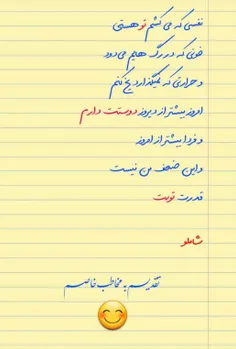 نفسی که می کشم تو هستی
خونی که در رگ هایم می دود
و حرارتی که نمیگذارد یخ کنم
امروز بیشتر از دیروز دوستت دارم
و فردا بیشتر از امروز
و این ضعف من نیست
قدرت توست
شاملو
تقدیم به مخاطب خاصم